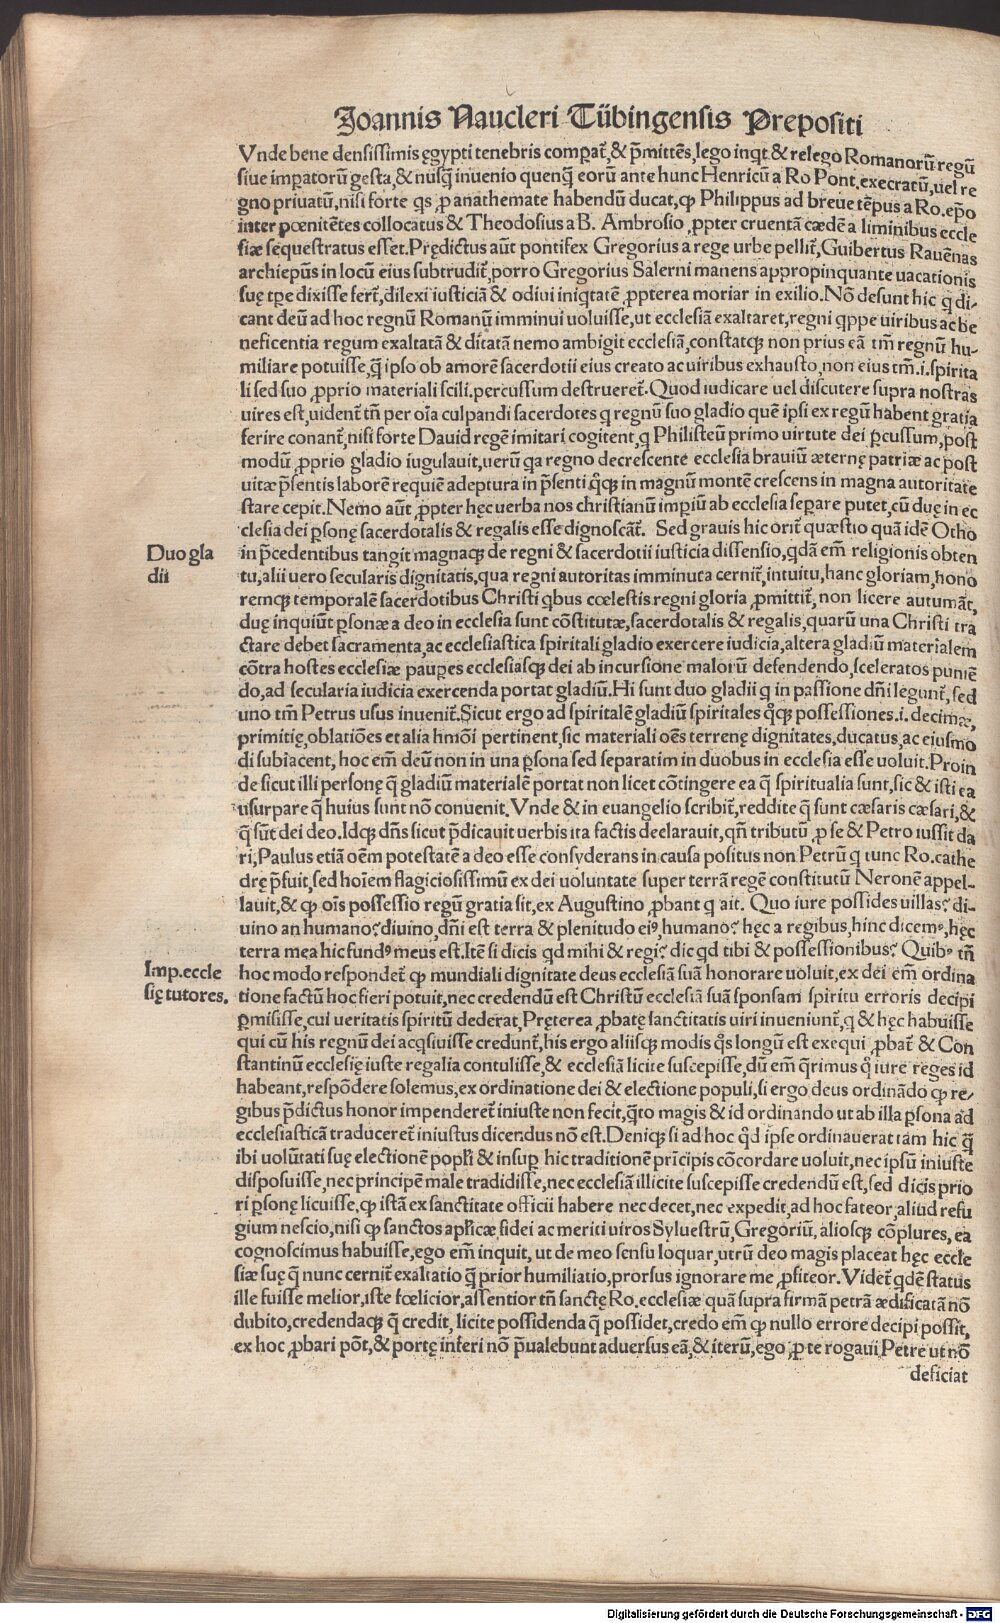 Joannis Naucleri Tübingensis Prepositi
Vnde bene densissimis ęgypti tenebris comparat᷑, & p̄mittēs, lego inqt & relego Romanorū regū
siue impatorū gesta, & nusq̄ inuenio quenq̄ eorū ante hunc Henricū a Ro Pont. execratū, uel re
gno priuatū, nisi forte qs ꝓ anathemate habendū ducat, ꝙ Philippus ad breue tēpus a Ro. epo
inter pœnitētes collocatus & Theodosius a B. Ambrosio ꝓpter cruentā cædē a liminibus eccle
siæ sequestratus esset. Prędictus aūt pontifex Gregorius a rege urbe pellit᷑, Guibertus Rauēnas
archiepus in locū eius subtrudit᷑, porro Gregorius Salerni manens appropinquante uacationis
suę tꝑe dixisse fert᷑, dilexi iusticiā & odiui iniqtatē ꝓpterea moriar in exilio. Nō desunt hic q di-
cant deū ad hoc regnū Romanū imminui uoluisse, ut ecclesiā exaltaret, regni qppe uiribus ac be
neficentia regum exaltatā & ditatā nemo ambigit ecclesiā, constatqꝫ non prius eā tm̄ regnū hu-
miliare potuisse, q̄ ipso ob amorē sacerdotii eius creato ac uiribus exhausto, non eius tm̄.i. spirita
li sed suo ꝓprio materiali scili. percussum destrueret᷑. Quod iudicare uel discutere supra nostras
uires est, uident᷑ tn̄ per oīa culpandi sacerdotes q regnū suo gladio quē ipsi ex regū habent gratia
ferire conant᷑, nisi forte Dauid regē imitari cogitent, q Philisteū primo uirtute dei ꝑcussum, post
modū ꝓprio gladio iugulauit, uerū qa regno decrescente ecclesia brauiū æternę patriæ ac post
uitæ p̄sentis laborē requiē adeptura in p̄senti qqꝫ in magnū montē crescens in magna autoritate
stare cepit. Nemo aūt ꝓpter hęc uerba nos christianū impiū ab ecclesia separe putet, cū duę in ec
clesia dei psonę sacerdotalis & regalis esse dignoscāt᷑. Sed grauis hic orit᷑ quæstio quā idē Otho
Duo gla
dii
in p̄cedentibus tangit magnaqꝫ de regni & sacerdotii iusticia dissensio, qdā em̄ religionis obten
tu, alii uero secularis dignitatis, qua regni autoritas imminuta cernit᷑, intuitu, hanc gloriam, hono
remqꝫ temporalē sacerdotibus Christi qbus cœlestis regni gloria ꝓmittit᷑, non licere autumāt,
duę inquiūt psonæ a deo in ecclesia sunt cōstitutæ, sacerdotalis & regalis, quarū una Christi tra
ctare debet sacramenta, ac ecclesiastica spiritali gladio exercere iudicia, altera gladiū materialem
cōtra hostes ecclesiæ pauꝑes ecclesiasqꝫ dei ab incursione malorū defendendo, sceleratos puniē
do, ad secularia iudicia exercenda portat gladiū. Hi sunt duo gladii q in passione dn̄i legunt᷑, sed
uno tm̄ Petrus usus inuenit᷑. Sicut ergo ad spiritalē gladiū spiritales qqꝫ possessiones.i. decimæ,
primitię, oblatiōes et alia hmōi pertinent, sic materiali oēs terrenę dignitates, ducatus, ac eiusmo
di subiacent, hoc em̄ deū non in una psona sed separatim in duobus in ecclesia esse uoluit. Proin
de sicut illi personę q gladiū materialē portat non licet cōtingere ea q̄ spiritualia sunt, sic & isti ea
usurpare q̄ huius sunt nō conuenit. Vnde & in euangelio scribit᷑, reddite q̄ sunt cæsaris cæsari, &
q̄ sūt dei deo. Idqꝫ dn̄s sicut p̄dicauit uerbis ita factis declarauit, qn̄ tributū ꝓ se & Petro iussit da
ri, Paulus etiā oēm potestatē a deo esse consyderans in causa positus non Petrū q tunc Ro. cathe
drę p̄fuit, sed hoīem flagiciosissimū ex dei uoluntate super terrā regē constitutū Neronē appel-
lauit, & ꝙ oīs possessio regū gratia sit, ex Augustino ꝓbant q ait. Quo iure possides uillas? di-
uino an humano? diuino, dn̄i est terra & plenitudo eiꝰ, humano? hęc a regibus, hinc dicemꝰ, hęc
terra mea hic fundꝰ meus est. Itē si dicis qd mihi & regi? dic qd tibi & possessionibus? Quibꝰ tn̄
Imp. eccle
się tutores.
hoc modo respondet᷑ ꝙ mundiali dignitate deus ecclesiā suā honorare uoluit, ex dei em̄ ordina
tione factū hoc fieri potuit, nec credendū est Christū ecclesiā suā sponsam spiritu erroris decipi
ꝑmisisse, cui ueritatis spiritū dederat, Pręterea ꝓbatę sanctitatis uiri inueniunt᷑, q & hęc habuisse
qui cū his regnū dei acqsiuisse credunt᷑, his ergo aliisqꝫ modis qs longū est exequi ꝓbat᷑ & Con
stantinū ecclesię iuste regalia contulisse, & ecclesiā licite suscepisse, dū em̄ qrimus q iure reges id
habeant, respōdere solemus, ex ordinatione dei & electione populi, si ergo deus ordināndo ꝙ re-
gibus p̄dictus honor impenderet᷑ iniuste non fecit, q̄to magis & id ordinando ut ab illa psona ad
ecclesiasticā traduceret᷑ iniustus dicendus nō est. Deniqꝫ si ad hoc qd ipse ordinauerat tam hic q̄
ibi uolūtati suę electionē popłi & insup hic traditionē prīcipis cōcordare uoluit, nec ipsū iniuste
disposuisse, nec principē male tradidisse, nec ecclesiā illicite suscepisse credendū est, sed dicis prio
ri psonę licuisse, ꝙ istā ex sanctitate officii habere nec decet, nec expedit, ad hoc fateor, aliud refu
gium nescio, nisi ꝙ sanctos apłicæ fidei ac meriti uiros Syluestrū, Gregoriū, aliosqꝫ cōplures, ea
cognoscimus habuisse, ego em̄ inquit, ut de meo sensu loquar, utrū deo magis placeat hęc eccle
siæ suę q̄ nunc cernit᷑ exaltatio q̄ prior humiliatio, prorsus ignorare me ꝓfiteor. Videt᷑ qdē status
ille fuisse melior, iste fœlicior, assentior tn̄ sanctę Ro. ecclesiæ quā supra firmā petrā ædificatā nō
dubito, credendaqꝫ q̄ credit, licite possidenda q̄ possidet, credo em̄ ꝙ nullo errore decipi possit,
ex hoc ꝓbari pōt, & portę inferi nō p̄ualebunt aduersus eā, & iterū, ego ꝓ te rogaui Petre ut nō
deficiat
Digitalisierung gefördert durch die Deutsche Forschungsgemeinschaft - DFG